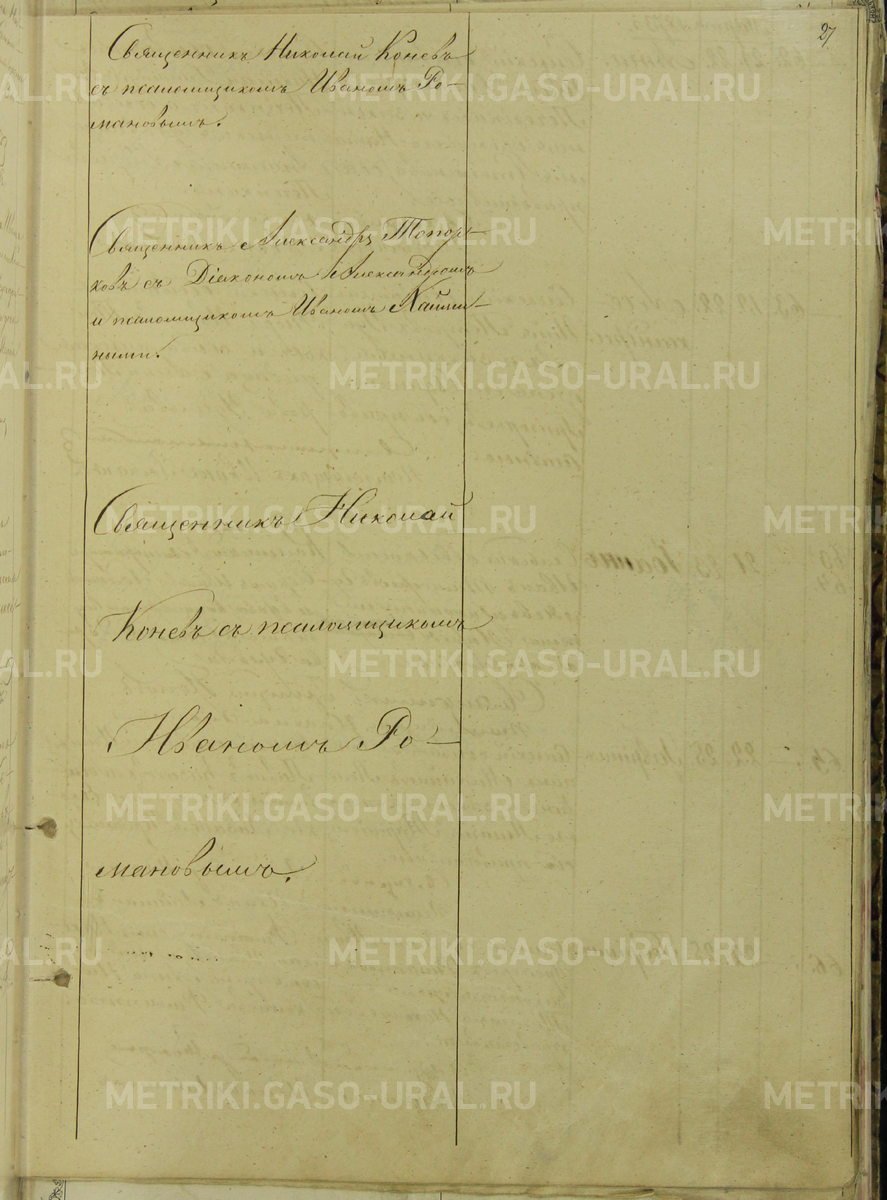 27
Священникъ Николай Коневъ
съ псаломщикомъ Иваномъ Ро-
мановымъ.
Священникъ Александръ Топор-
ковъ съ Діакономъ Александромъ
и псаломщикомъ Иваномъ
ными.
Священникъ Николай
Коневъ съ псаломщикомъ
Иваномъ Ро-
мановымъ.
METRIKI.GASO-URAL.RU